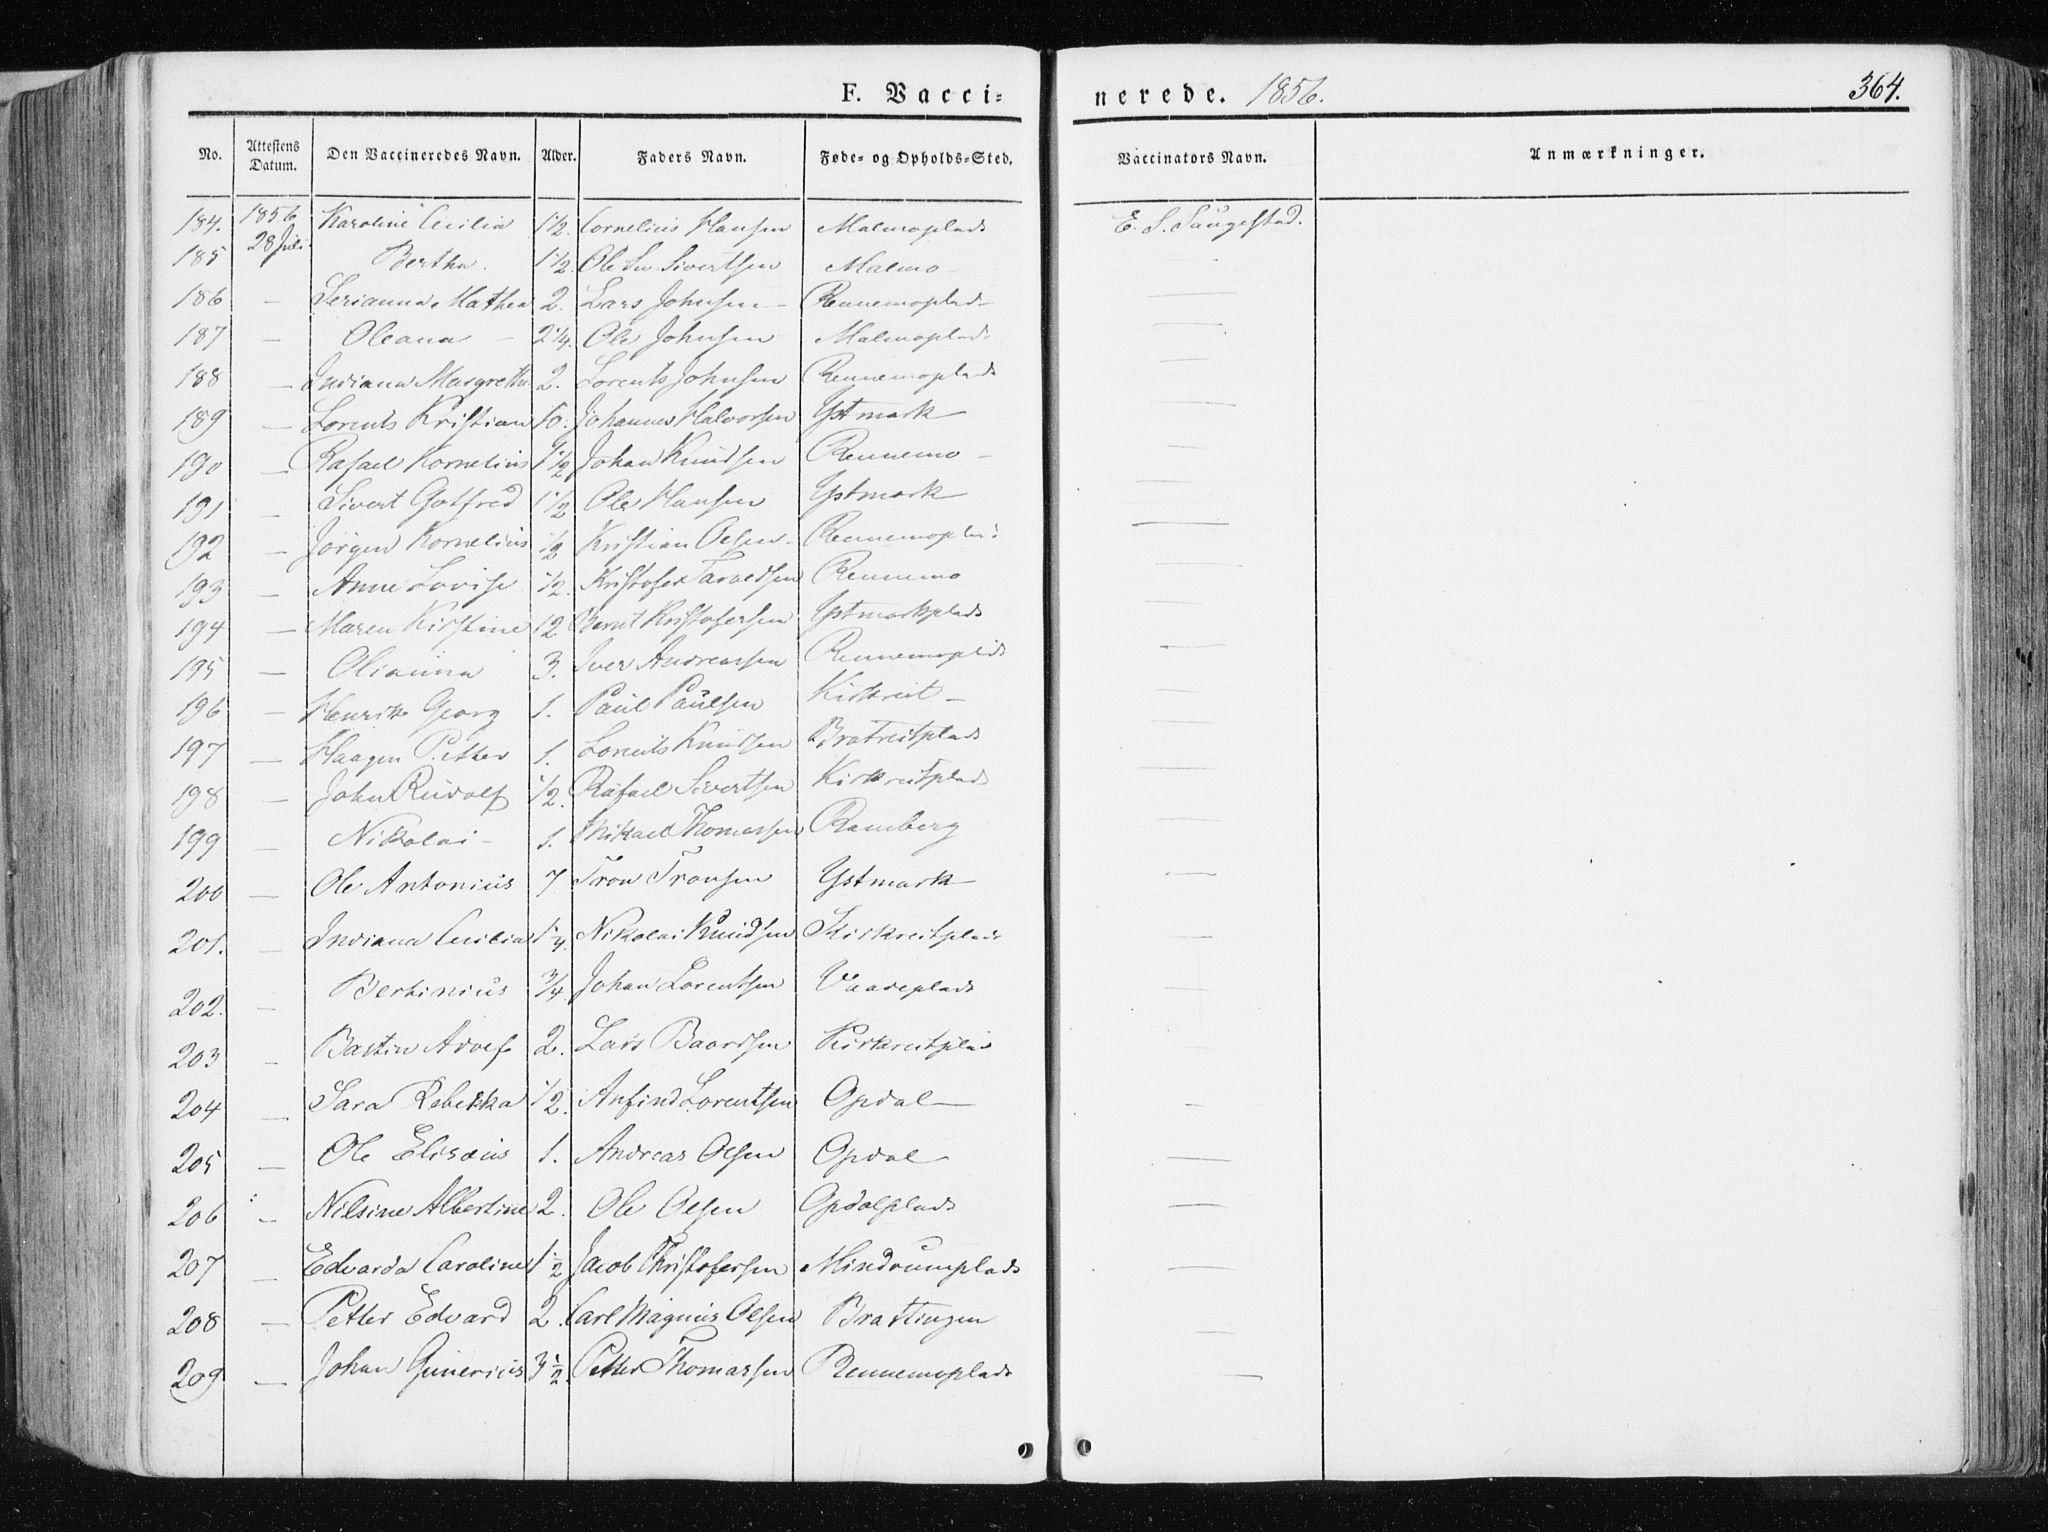 F. Vacci-
nerede. 1856.
364.
No. Attestens Datum. Den Vaccineredes Navn. Alder. Faders Navn. Føde- og Opholds-Sted. Vaccinators Navn. Anmærkninger.
184. 1856 28 Juli Karoline Cecilia 1 1/2. Cornelius Hansen Malmoplads E. S. Saugestad.
185 Bertha. 1 1/2. Ole Sivertsen Malmo -
186 - Serianna Mathea 2. Lars Johnsen - Rennemoplads
187 - Oleana - 2 1/4. Ole Johnsen Malmoplads
188 - Indiana Margretha 2. Lorents Johnsen Rennemoplads
189 - Lorents Kristian 10. Johannes Halvorsen Ystmark
190 - Rafael Kornelius 1 1/2 Johan Knudsen Rennemo -
191 - Sivert Gotfred 1 1/2 Ole Hansen Ystmark
192 - Jørgen Kornelius 1/2 Kristian Olsen - Rennemoplads
193 - Anne Lovise 1/2. Kristofer Rennemo
194 - Maren Kirstine 12 Bernt Kristofersen Ystmarkplads
195 - Olianna 3. Iver Andreassen Rennemoplads
196 - Henrik Georg 1. Paul Paulsen Kirkreit -
197 - Haagen Petter 1. Lorents Knudsen Bratreitplads
198 - John Rudolf 1/2. Rafael Sivertsen Kirkreitplads
199 - Nikolai - 1. Mikael Thomassen Ramberg
200 - Ole Antonius 7 Tron Tronsen Ystmark
201. - Indiana Cecilia 1/4. Nikolai Knudsen Kirkreitplads
202. - Bertinius 3/4 Johan Lorentsen Vaadeplads
203 - Bastin Adolf 2. Lars Baardsen Kirkreitplads
204 - Sara Rebekka 1/2. Anfind Lorentsen Opdal -
205 - Ole Elisæus 1. Andreas Olsen Opdal
206 - Nilsine Albertine 2. Ole Olsen Opdalplads
207 - Edvarda Caroline 1 1/2 Jacob Christofersen Mindrumplads
208 - Petter Edvard 2. Carl Magnus Olsen Brattingen
209 - Johan Gunerius 3 1/2. Petter Thomassen Rennemoplads